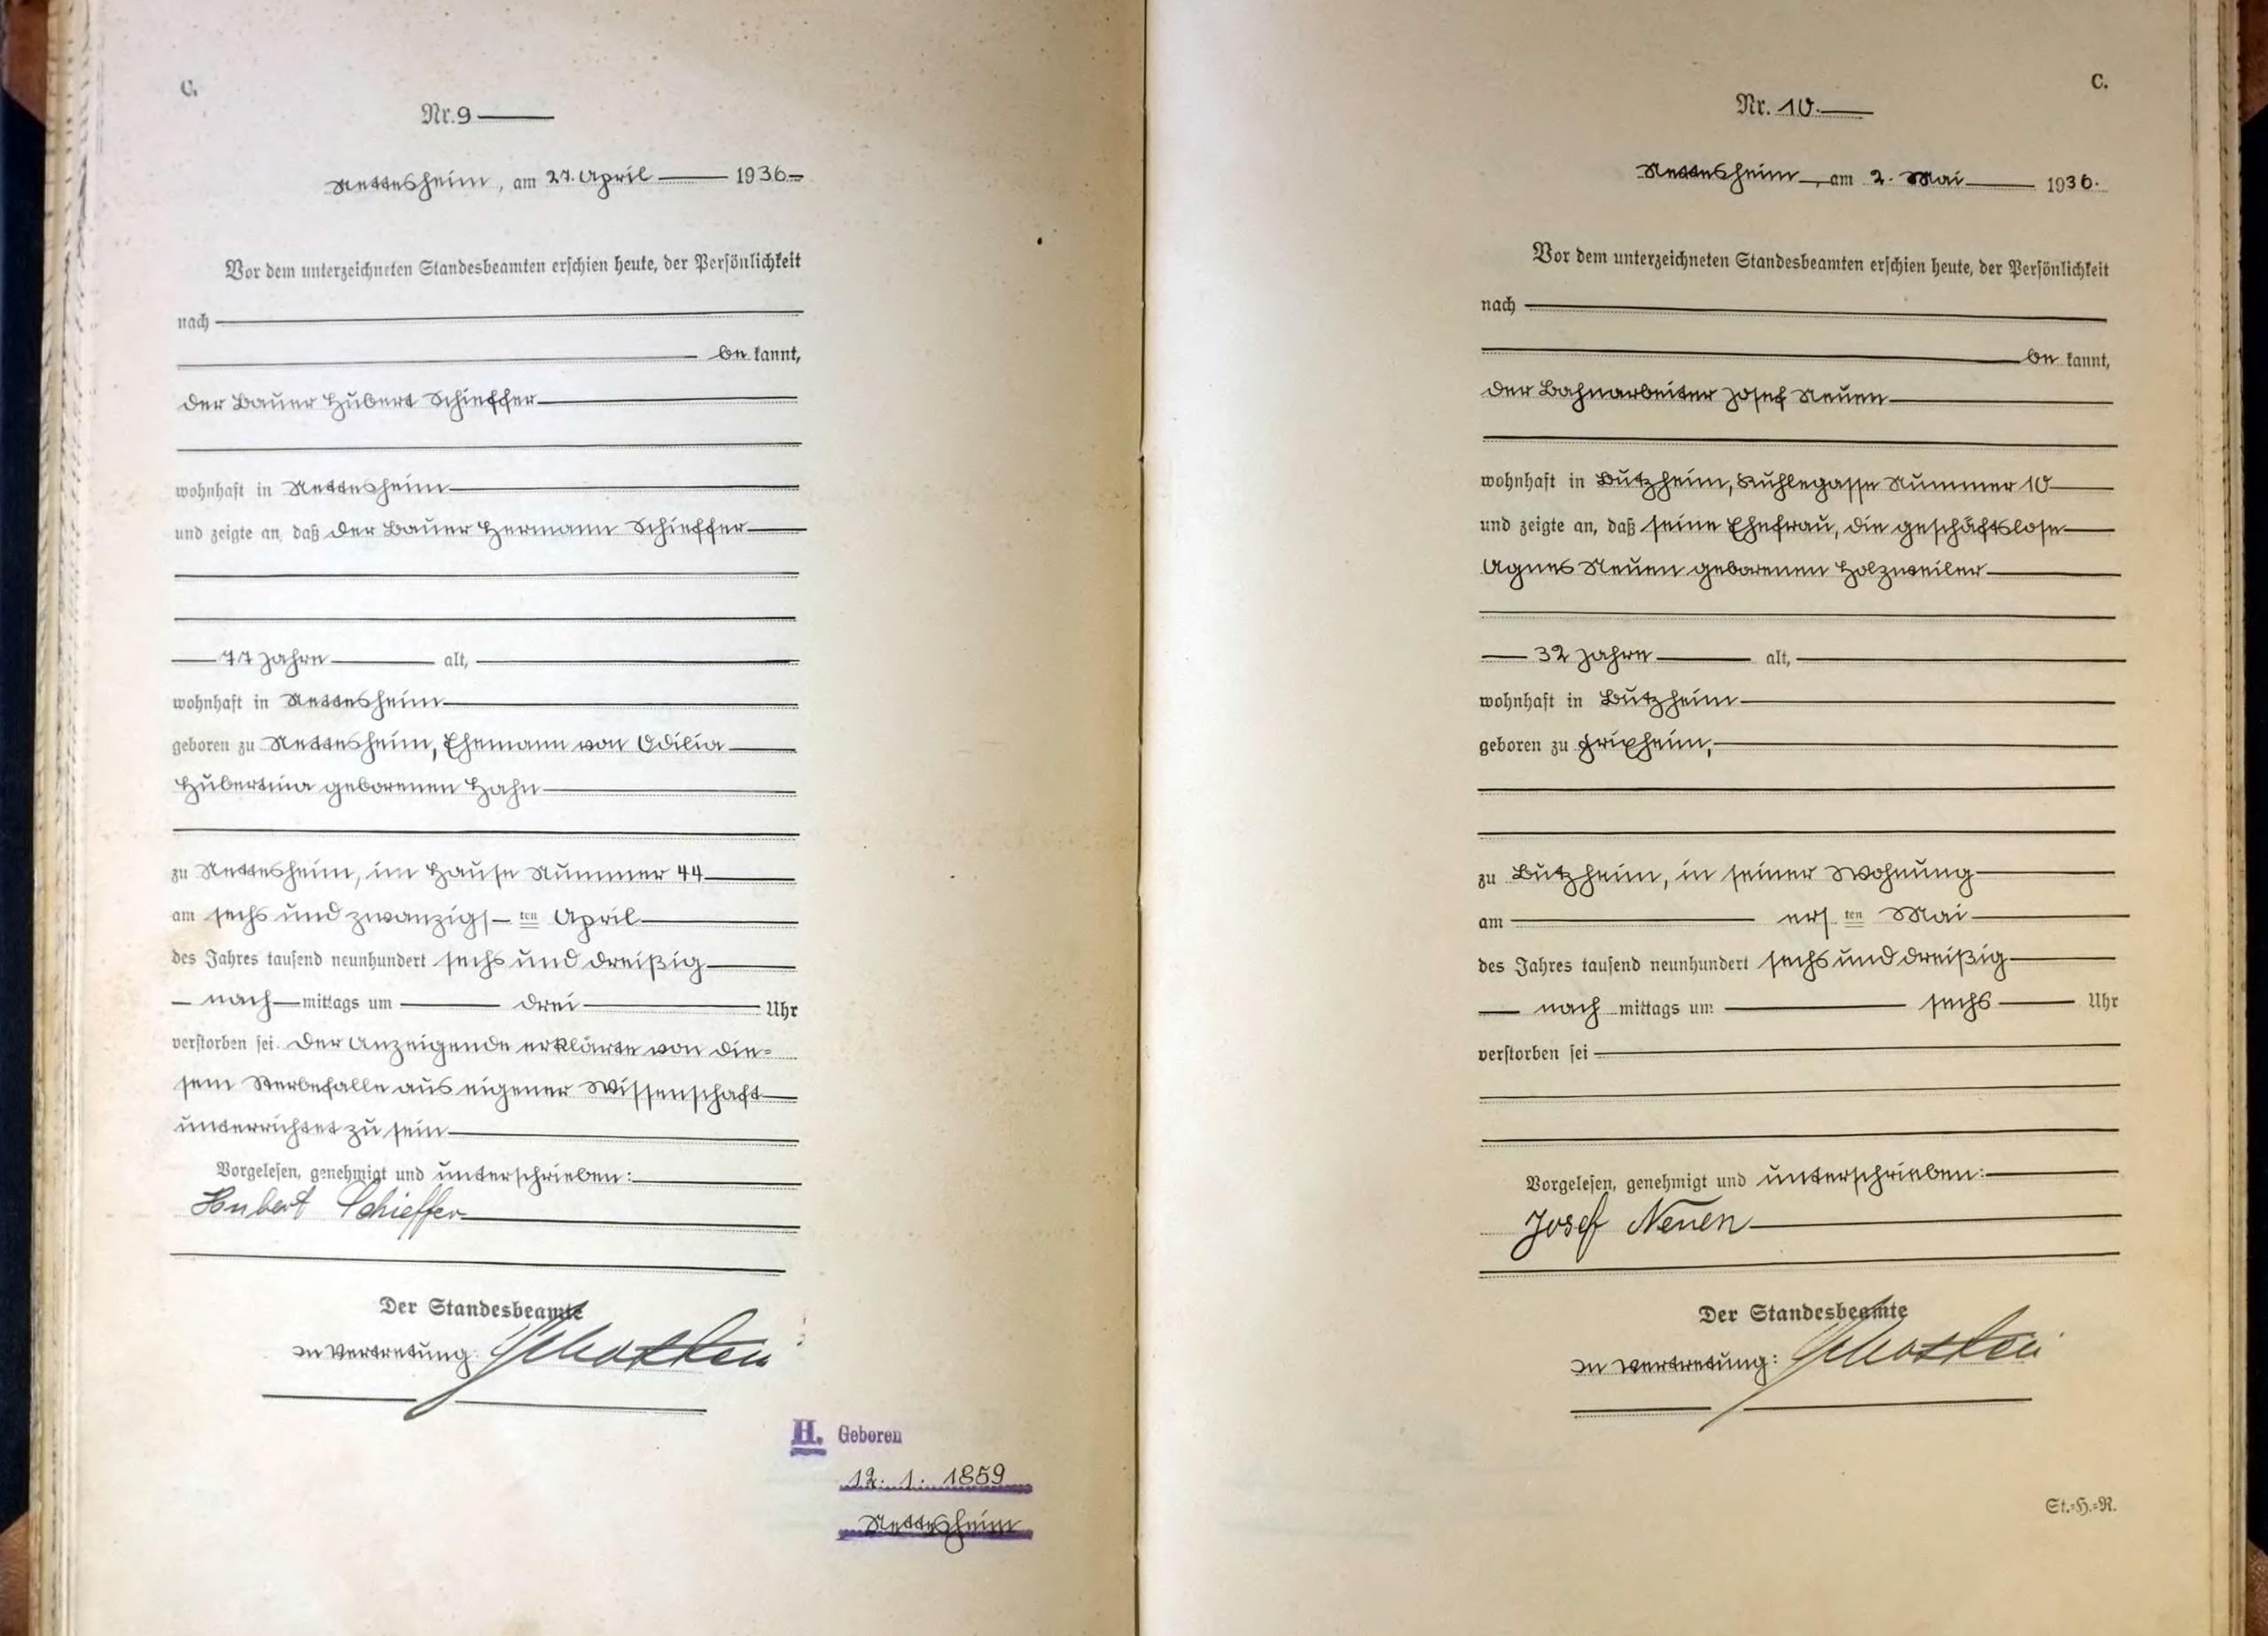 C.
Nr. 9
Nettesheim, am 27. April 1936
Vor dem unterzeichneten Standesbeamten erschien heute, der Persönlichkeit
nach
be kannt,
der Bauer Hubert Schieffer
wohnhaft in Nettesheim
und zeigte an, daß der Bauer Hermann Schieffer
77 Jahre alt,
wohnhaft in Nettesheim
geboren zu Nettesheim, Ehemann von Odilia
Hubertina geborenen Hahn
zu Nettesheim, im Hause Nummer 44
am sechs und zwanzigs- ten April
des Jahres tausend neunhundert sechs und dreißig
nach mittags um drei Uhr
verstorben sei. Der Anzeigende erklärte von die=
sem Sterbefalle aus eigener Wissenschaft
unterrichtet zu sein
Vorgelesen, genehmigt und unterschrieben:
Hubert Schieffer
Der Standesbeamte
In Vertretung:
H. Geboren
12. 1. 1859
Nettesheim
C.
Nr. 10.
Nettesheim, am 2. Mai 1936.
Vor dem unterzeichneten Standesbeamten erschien heute, der Persönlichkeit
nach
be kannt,
der Bahnarbeiter Josef Neuen
wohnhaft in Butzheim, Kuhlegasse Nummer 10
und zeigte an, daß seine Ehefrau, die geschäftslose
Agnes Neuen geborenen Holzweiler
32 Jahre alt,
wohnhaft in Butzheim
geboren zu Frixheim,
zu Butzheim, in seiner Wohnung
am ers ten Mai
des Jahres tausend neunhundert sechs und dreißig
nach mittags um sechs Uhr
verstorben sei
Vorgelesen, genehmigt und unterschrieben:
Josef Neuen
Der Standesbeamte
In Vertretung:
St.=H.=R.